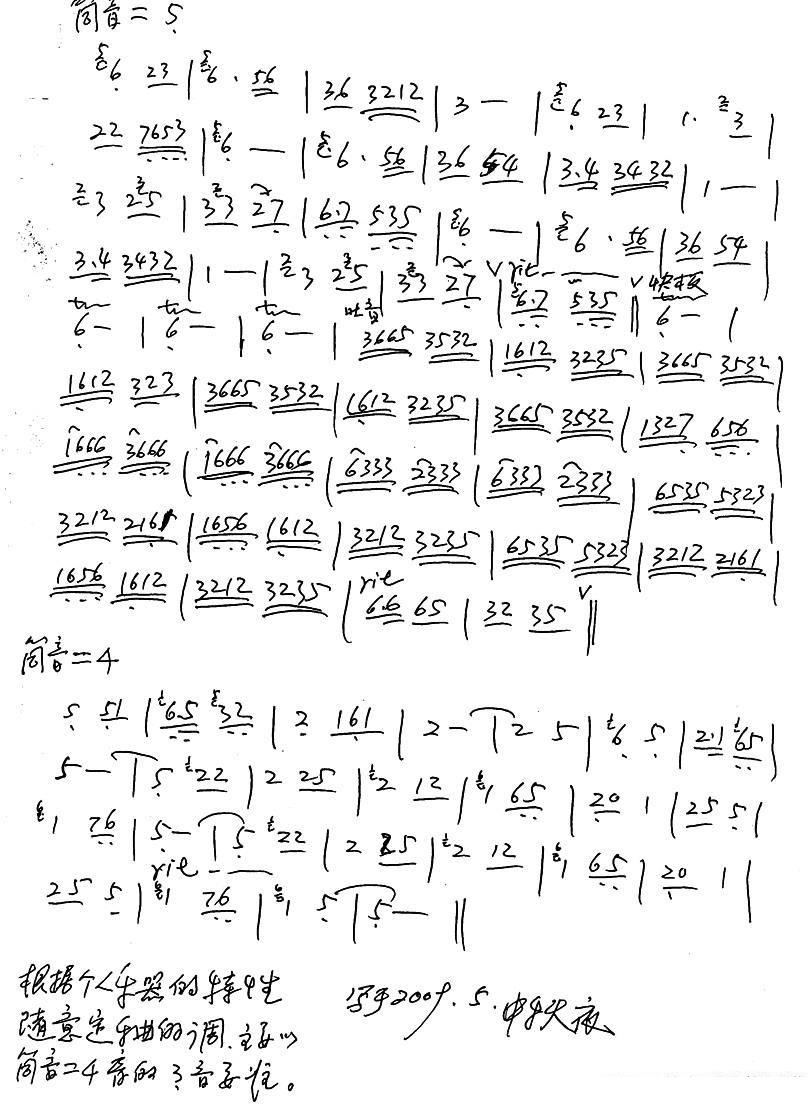 筒音=5
6 23 | 6 · 56 | 36 3212 | 3 — | 6 23 | 1 · 3 |
22 7653 | 6 — | 6 · 56 | 36 54 | 3.4 3432 | 1 — |
3 25 | 33 27 | 6.7 535 | 6 — | 6 · 56 | 36 54 |
3.4 3432 | 1 — | 3 25 | 33 27 V rit | 6.7 535 V ‖ 快板
tr 6 — | tr 6 — | tr 6 — | 吐音 3665 3532 | 1612 3235 | 3665 3532 |
1612 323 | 3665 3532 | 1612 3235 | 3665 3532 | 1327 656 |
1666 3666 | 1666 3666 | 6333 2333 | 6333 2333 | 6535 5323 |
3212 2161 | 1656 1612 | 3212 3235 | 6535 5323 | 3212 2161 |
1656 1612 | 3212 3235 | rit 6.6 65 | 32 35 V ‖
筒音=4
5 51 | 65 32 | 2 161 | 2 — | 2 5 | 6 5 | 2.1 65 |
5 — | 5 22 | 2 25 | 2 12 | 1 65 | 20 1 | 25 5 |
1 76 | 5 — | 5 22 | 2 25 | 2 12 | 1 65 | 20 1 |
25 5 | rit 1 76 | 1 5 | 5 — ‖
根据个人乐器的特性
随意定乐曲的调.主要以
筒音=4音的3音要准。
写于2009.5.